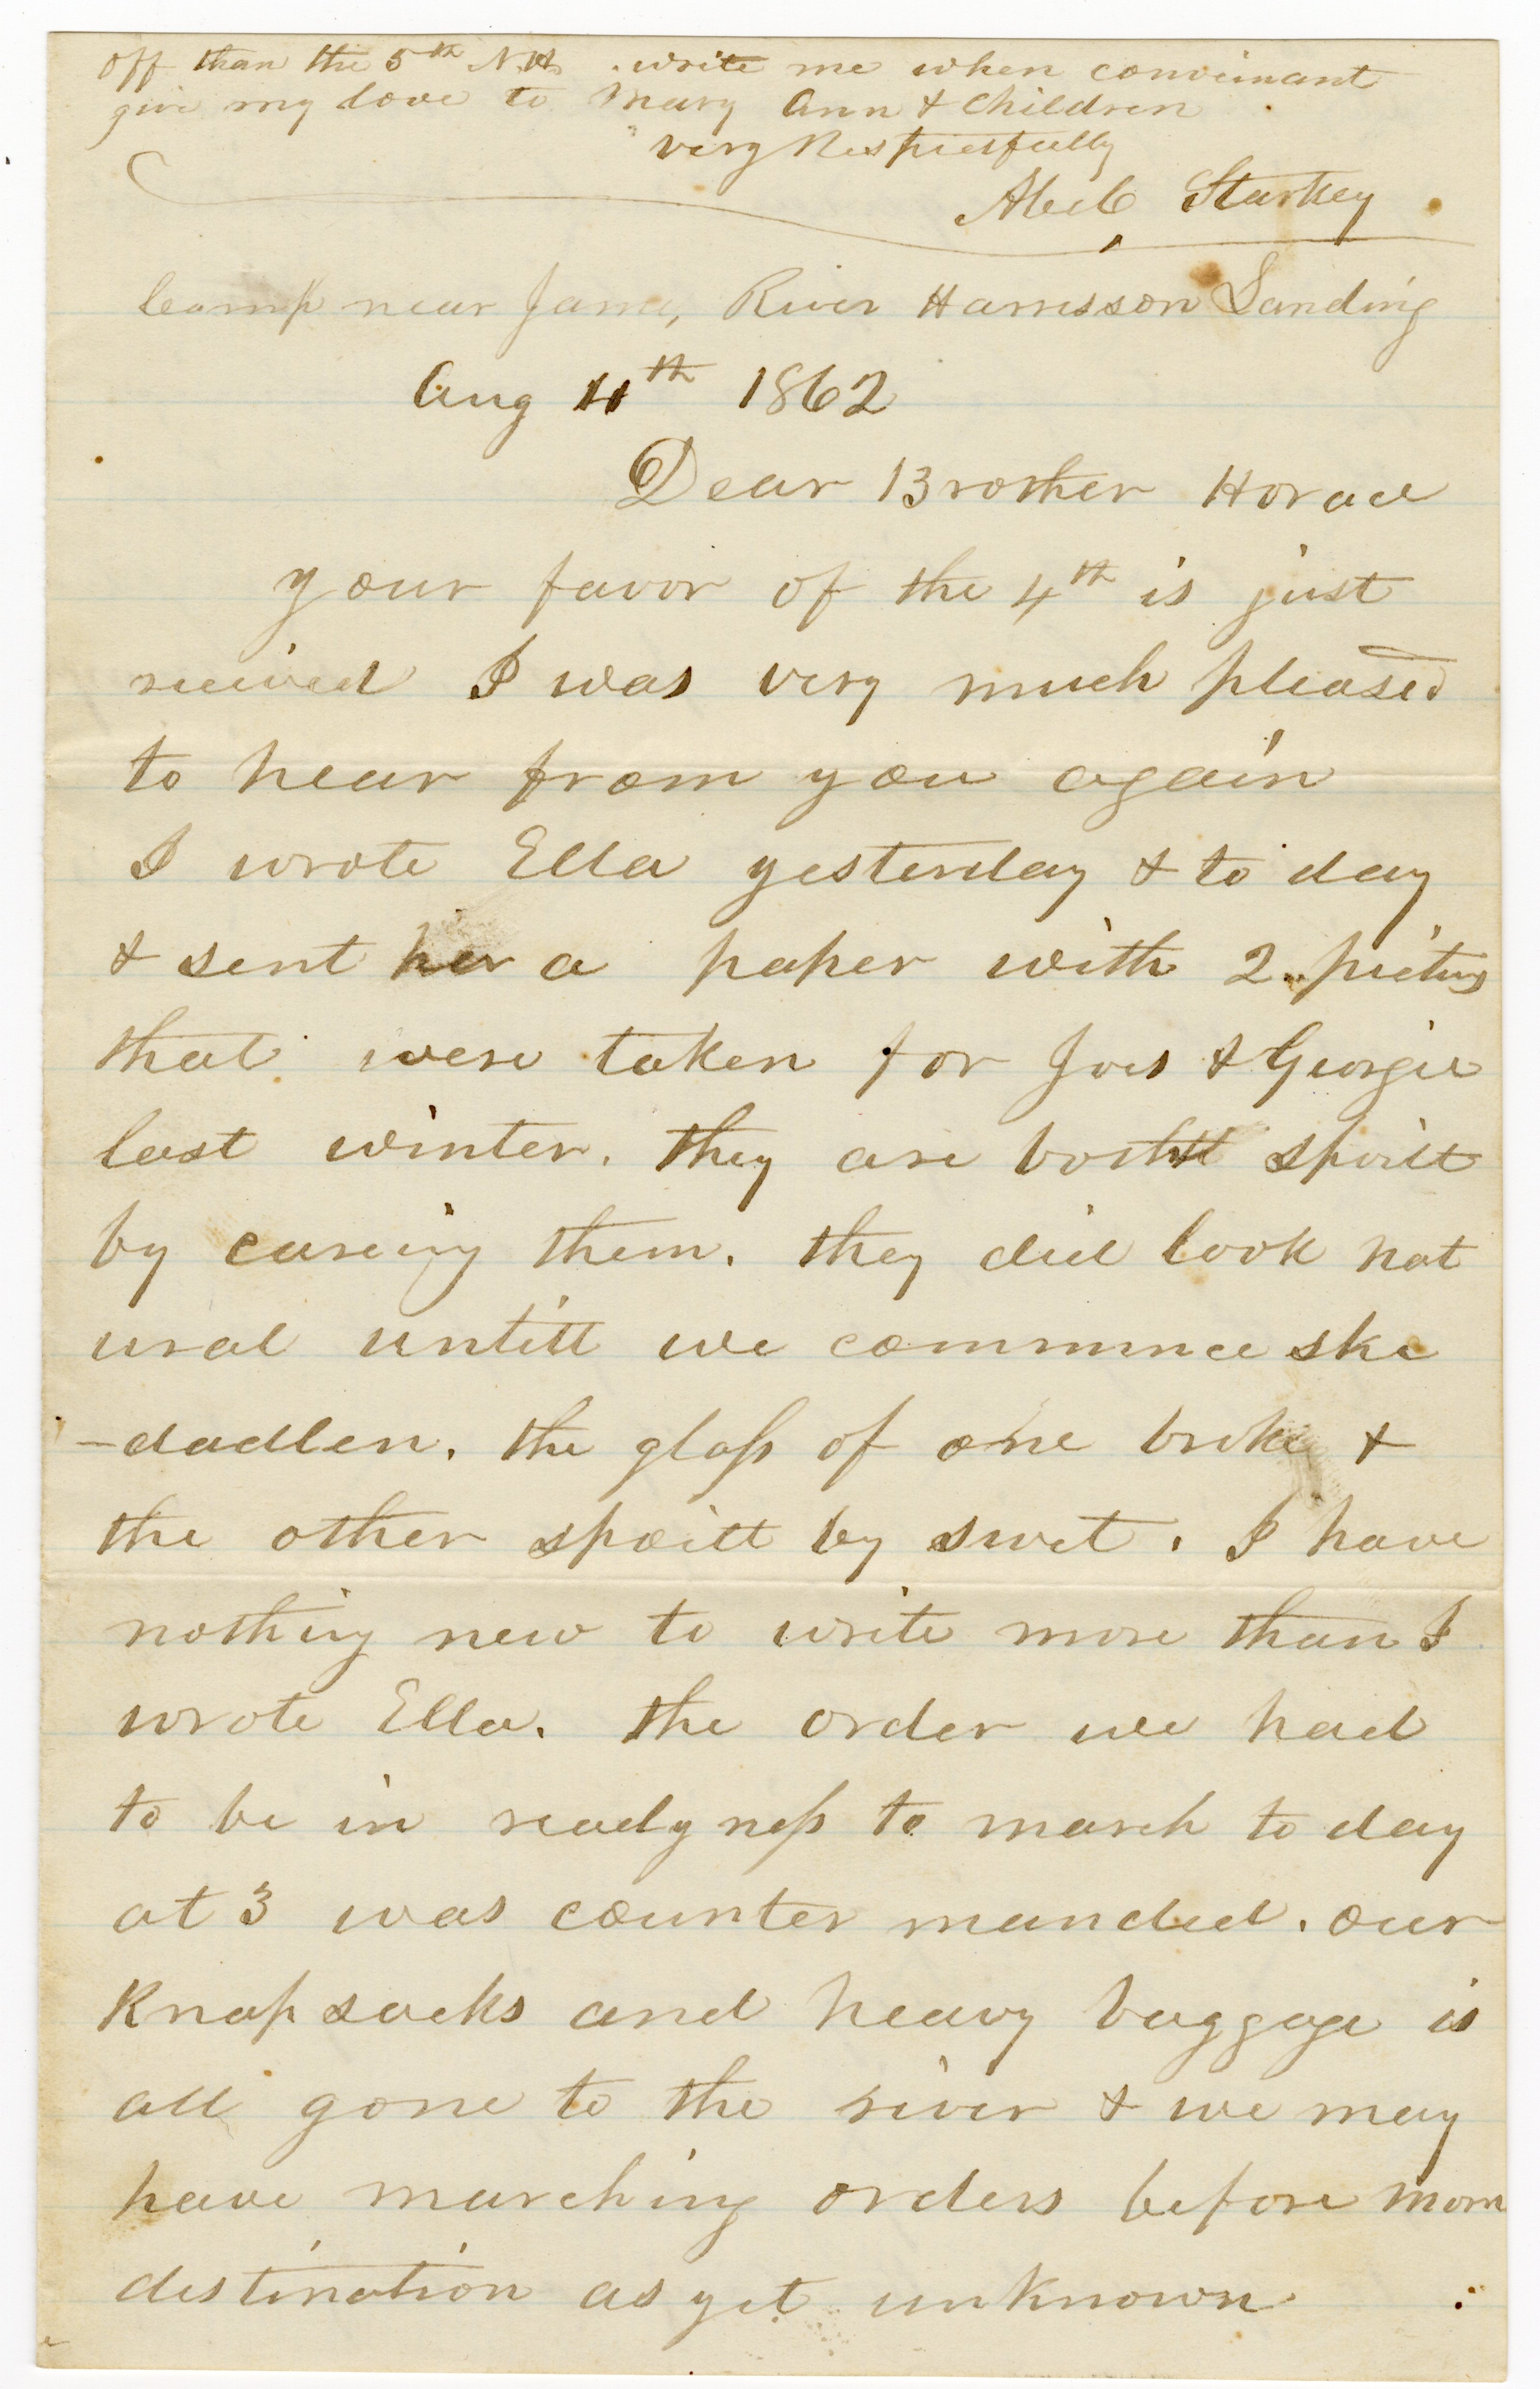 off than the 5th N.H. write me when conveinant
give my love to Mary Ann & Children
very Respectfully
Abel C Starkey
Camp near James River Harrisson Landing
Aug 11th 1862
Dear Brother Horace
your favor of the 4th is just
recieved I was very much pleased
to hear from you again
I wrote Ella yesterday & to day
& sent her a paper with 2 pictures
that were taken for Joes & Georgie
last winter. they are both spoilt
by careing them. they did look nat
ural untill we commence ske
-dadlen. the glass of one broke &
the other spoilt by swet. I have
nothing new to write more than I
wrote Ella. the order we had
to be in readyness to march to day
at 3 was counter manded. our
Knapsacks and heavy baggage is
all gone to the river & we may
have marching orders before morn
destination as yet unknown